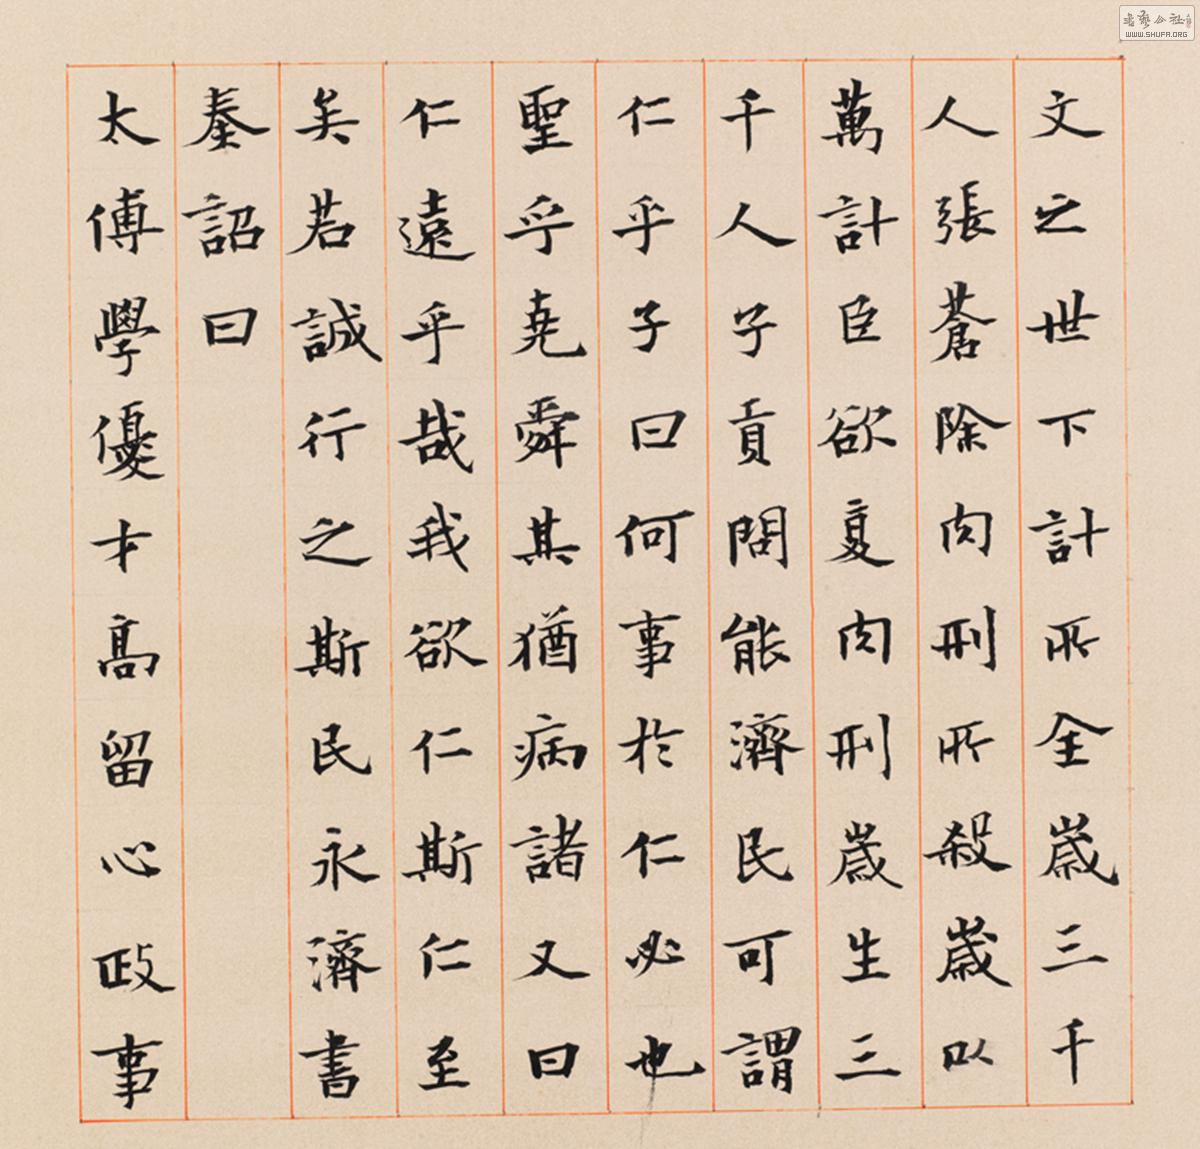 文之世下計所全歲三千
人張蒼除肉刑所殺歲以
萬計臣欲复肉刑歲生三
千人子貢問能濟民可謂
仁乎子曰何事於仁必也
聖乎堯舜其猶病諸又曰
仁遠乎哉我欲仁斯仁至
矣若誠行之斯民永濟書
奏詔曰
太傅學優才高留心政事
書藝公社
WWW.SHUFA.ORG